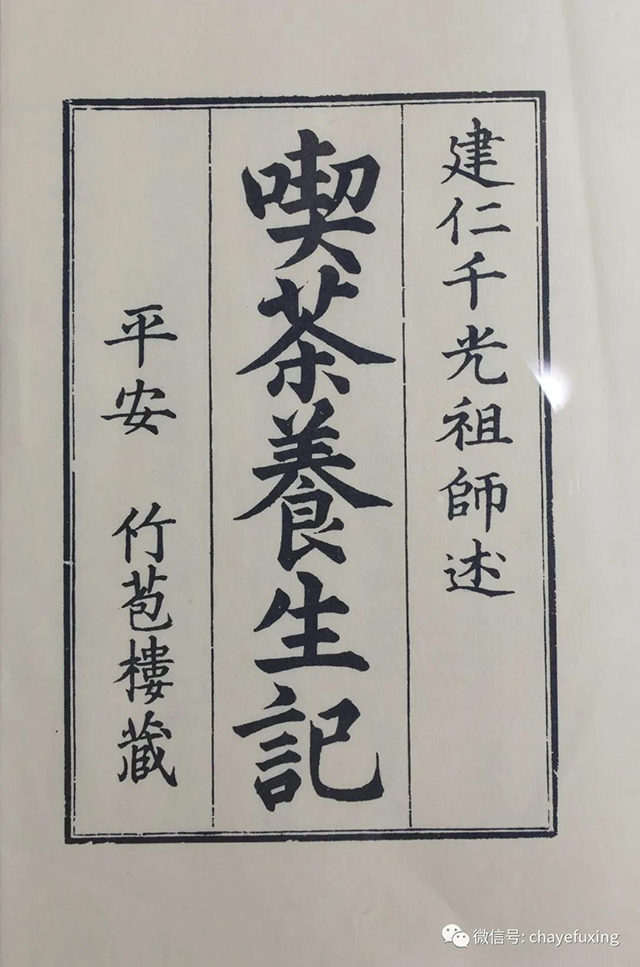 建仁千光祖師述
喫茶養生記
平安 竹苞樓蔵
微信号: chayefuxing